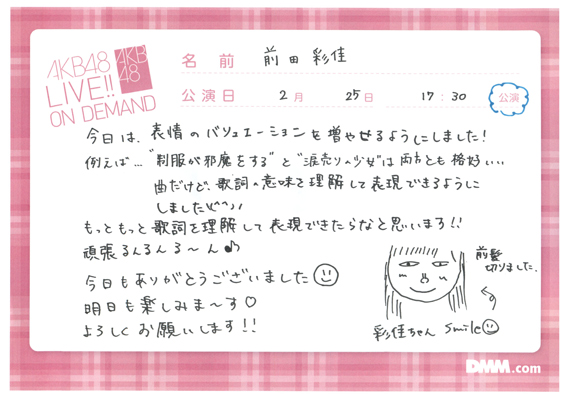 AKB48
LIVE!!
ON DEMAND
AKB
48
名前 前田彩佳
公演日 2月 25日 17:30 公演
今日は、表情のバリュエーションを増やせるようにしました!
例えば…"制服が邪魔をする"と"涙売りの少女"は両方とも格好いい
曲だけど、歌詞の意味を理解して表現できるようにし
しました(^^)//
もっともっと歌詞を理解して表現できたらなと思います!!
頑張るんるんる〜ん♪
今日もありがとうございました
明日も楽しみま〜す♡
よろしくお願いします!!
前髪
切りました.
彩佳ちゃん smile
DMM.com